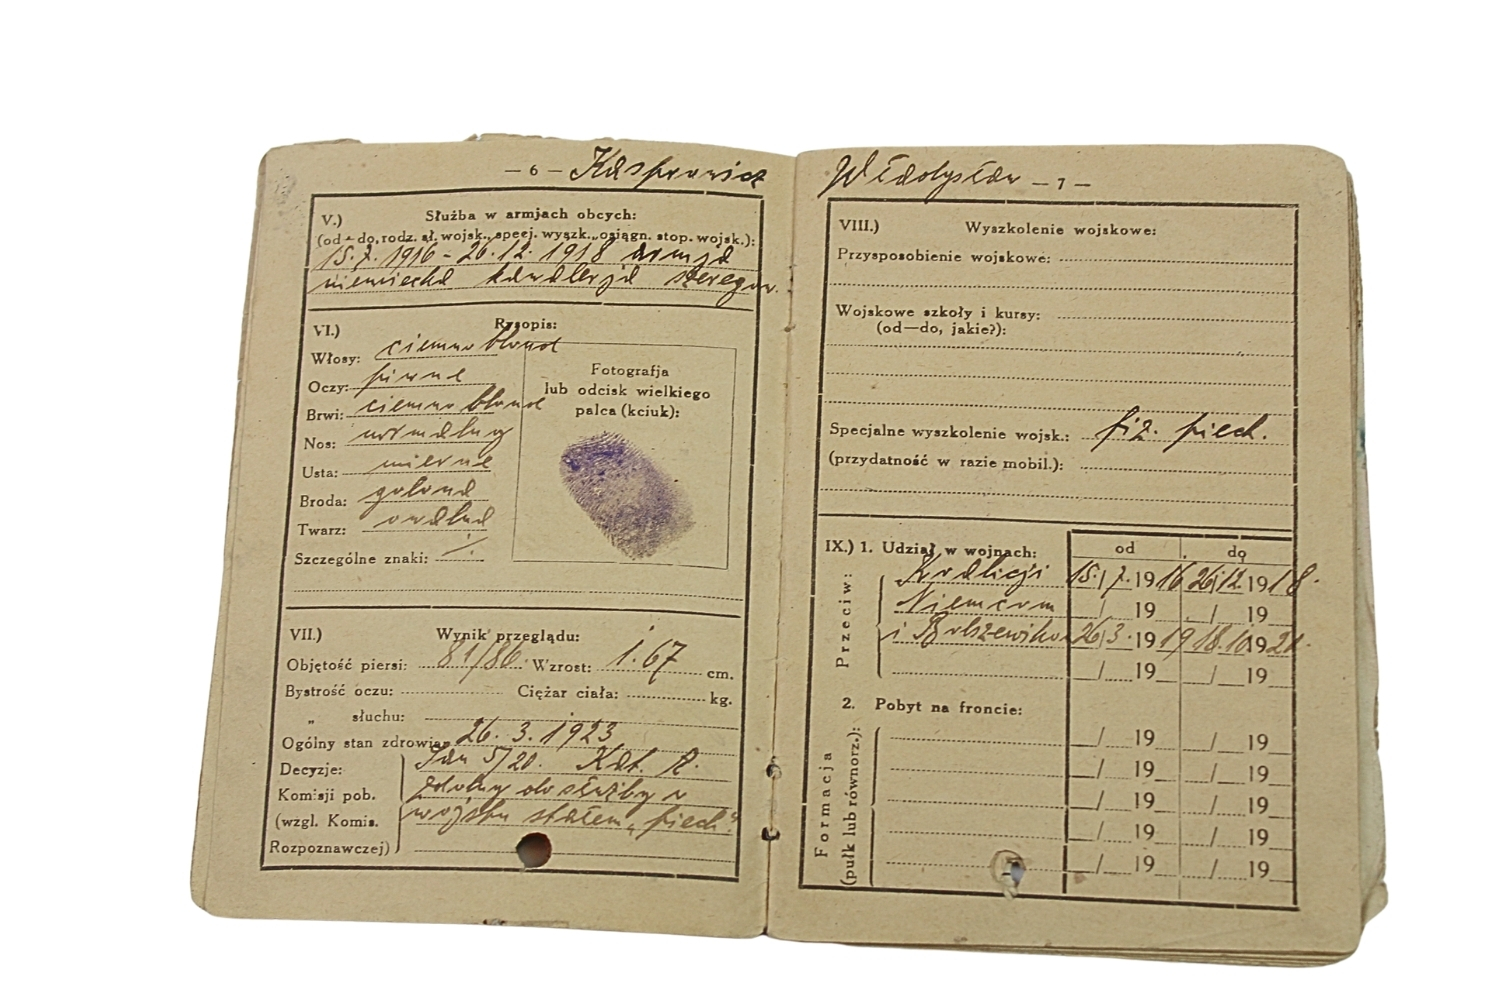 — 6 — Kasprowicz
V.) Służba w armjach obcych:
(od — do, rodz. sł. wojsk., specj. wyszk., osiągn. stop. wojsk.):
15.7. 1916 - 26.12. 1918 armja
niemiecka kawalerja szeregow.
VI.) Rysopis:
Włosy: ciemno blond
Oczy: piwne
Brwi: ciemno blond
Nos: normalny
Usta: mierne
Broda: golona
Twarz: owalna
Szczególne znaki: /.
Fotografja
lub odcisk wielkiego
palca (kciuk):
VII.) Wynik przeglądu:
Objętość piersi: 81/86. Wzrost: 1.67 cm.
Bystrość oczu: Ciężar ciała: kg.
„ słuchu:
Ogólny stan zdrowia: 26. 3. 1923
Decyzje: 5/20. Kat. A.
Komisji pob. zdolny do służby w
(wzgl. Komis. wojsku stałem „piech."
Rozpoznawczej)
Władysław — 7 —
VIII.) Wyszkolenie wojskowe:
Przysposobienie wojskowe:
Wojskowe szkoły i kursy:
(od—do, jakie?):
Specjalne wyszkolenie wojsk.: fiz. piech.
(przydatność w razie mobil.):
IX.) 1. Udział w wojnach: od do
Przeciw:
Koalicji 15/7. 1916 26/12. 1918.
Niemcom / 19 / 19
i Bolszewikom 26/3. 1919 18.10.1921.
/ 19 / 19
2. Pobyt na froncie:
Formacja
(pułk lub równorz.):
/ 19 / 19
/ 19 / 19
/ 19 / 19
/ 19 / 19
/ 19 / 19